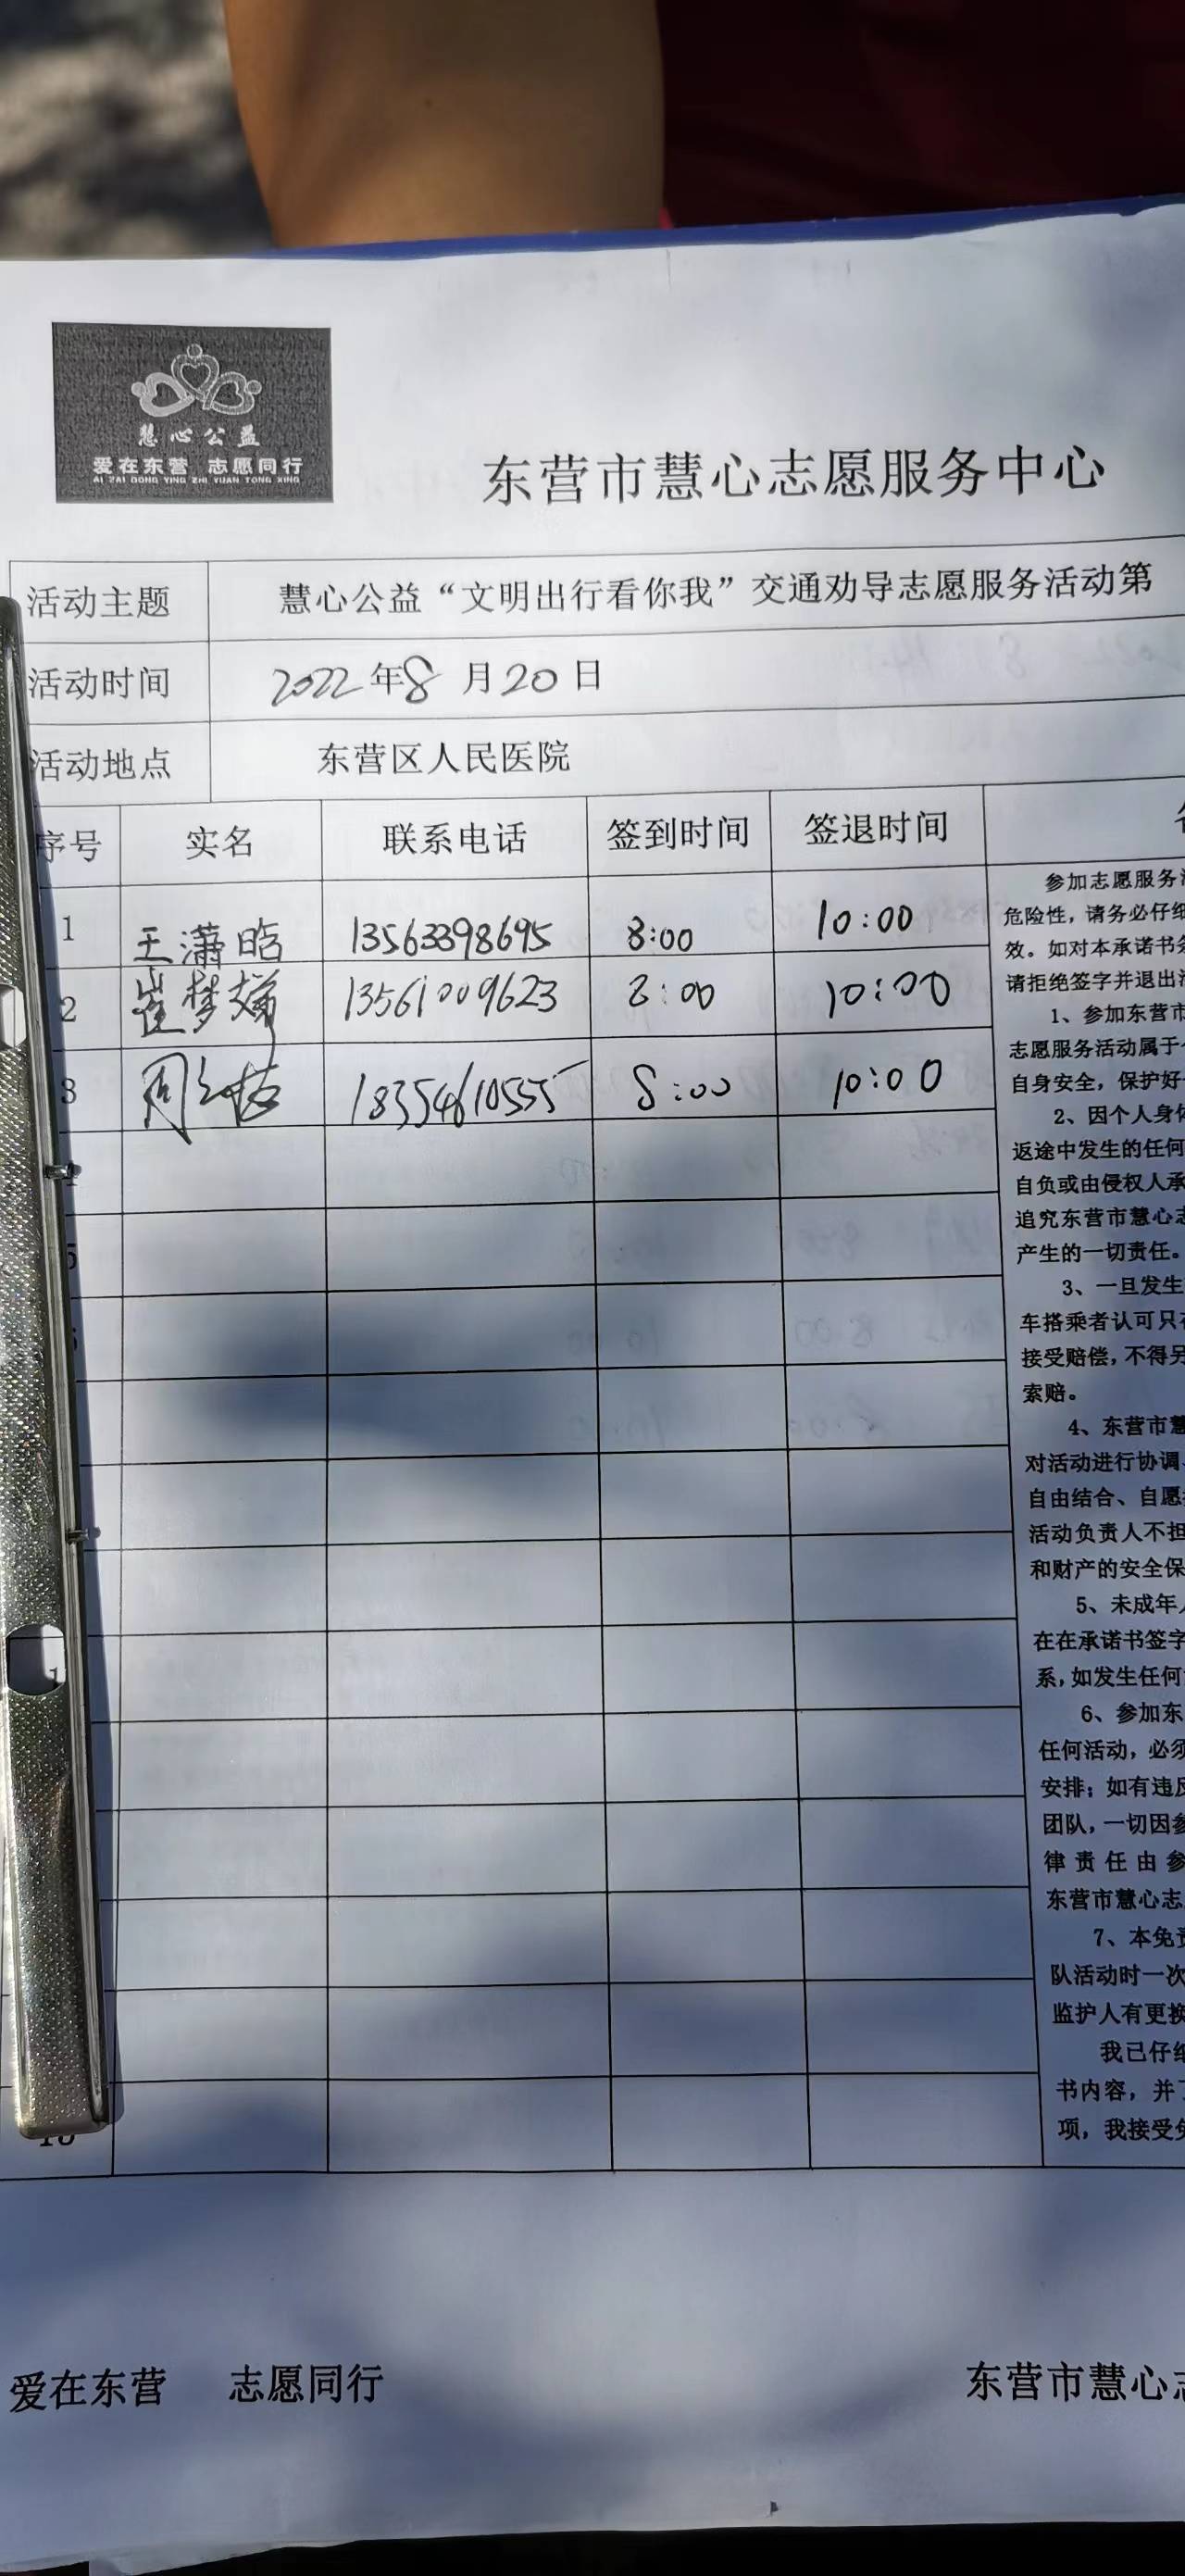 慧心公益
爱在东营 志愿同行
AI ZAI DONG YING ZHI YUAN TONG XING
东营市慧心志愿服务中心
活动主题 慧心公益“文明出行看你我”交通劝导志愿服务活动第
活动时间 2022年8月20日
活动地点 东营区人民医院
序号 实名 联系电话 签到时间 签退时间
1 王潇晗 13563398695 8:00 10:00
2 崔梦娣 13561009623 8:00 10:00
3 周 18354610555 8:00 10:00
参加志愿服务
危险性，请务必仔细
效。如对本承诺书
请拒绝签字并退出
1、参加东营市
志愿服务活动属于
自身安全，保护好
2、因个人身体
返途中发生的任何
自负或由侵权人承
追究东营市慧心志
产生的一切责任。
3、一旦发生
车搭乘者认可只
接受赔偿，不得另
索赔。
4、东营市慧
对活动进行协调
自由结合、自愿
活动负责人不担
和财产的安全保
5、未成年
在在承诺书签字
系，如发生任何
6、参加东
任何活动，必须
安排；如有违反
团队，一切因参
律责任由参
东营市慧心志
7、本免责
队活动时一次
监护人有更换
我已仔细
书内容，并
项，我接受
爱在东营 志愿同行
东营市慧心志